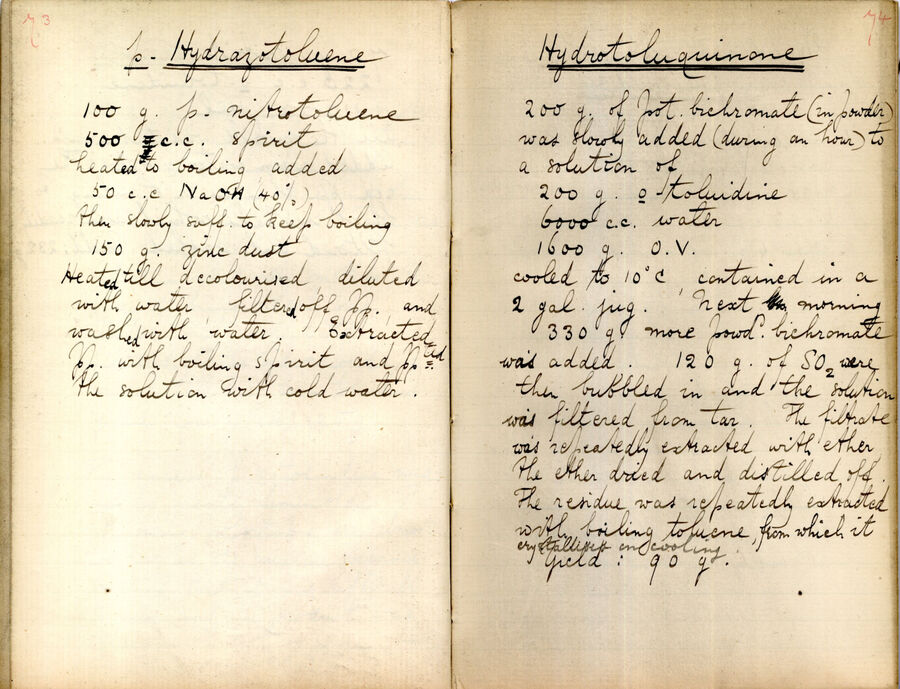 73
p- Hydrazotoluene
100 g. p- nitrotoluene
500 c.c. spirit
heated to boiling added
50 c.c NaOH (40%)
then slowly suff. to keep boiling
150 g. zinc dust
Heated till decolourised, diluted
with water, filtered off pp. and
washed with water. Extracted
pp. with boiling spirit and ppted
the solution with cold water.
74
Hydrotoluquinone
200 g. of pot. bichromate (in powder)
was slowly added (during an hour) to
a solution of
200 g. o-toluidine
6000 c.c. water
1600 g. O.V.
cooled to 10°C contained in a
2 gal. jug. Next morning
330 g. more powd. bichromate
was added. 120 g. of SO2 were
then bubbled in and the solution
was filtered from tar. The filtrate
was repeatedly extracted with ether
the ether dried and distilled off.
The residue was repeatedly extracted
with boiling toluene, from which it
crystallises on cooling.
Yield: 90 g.